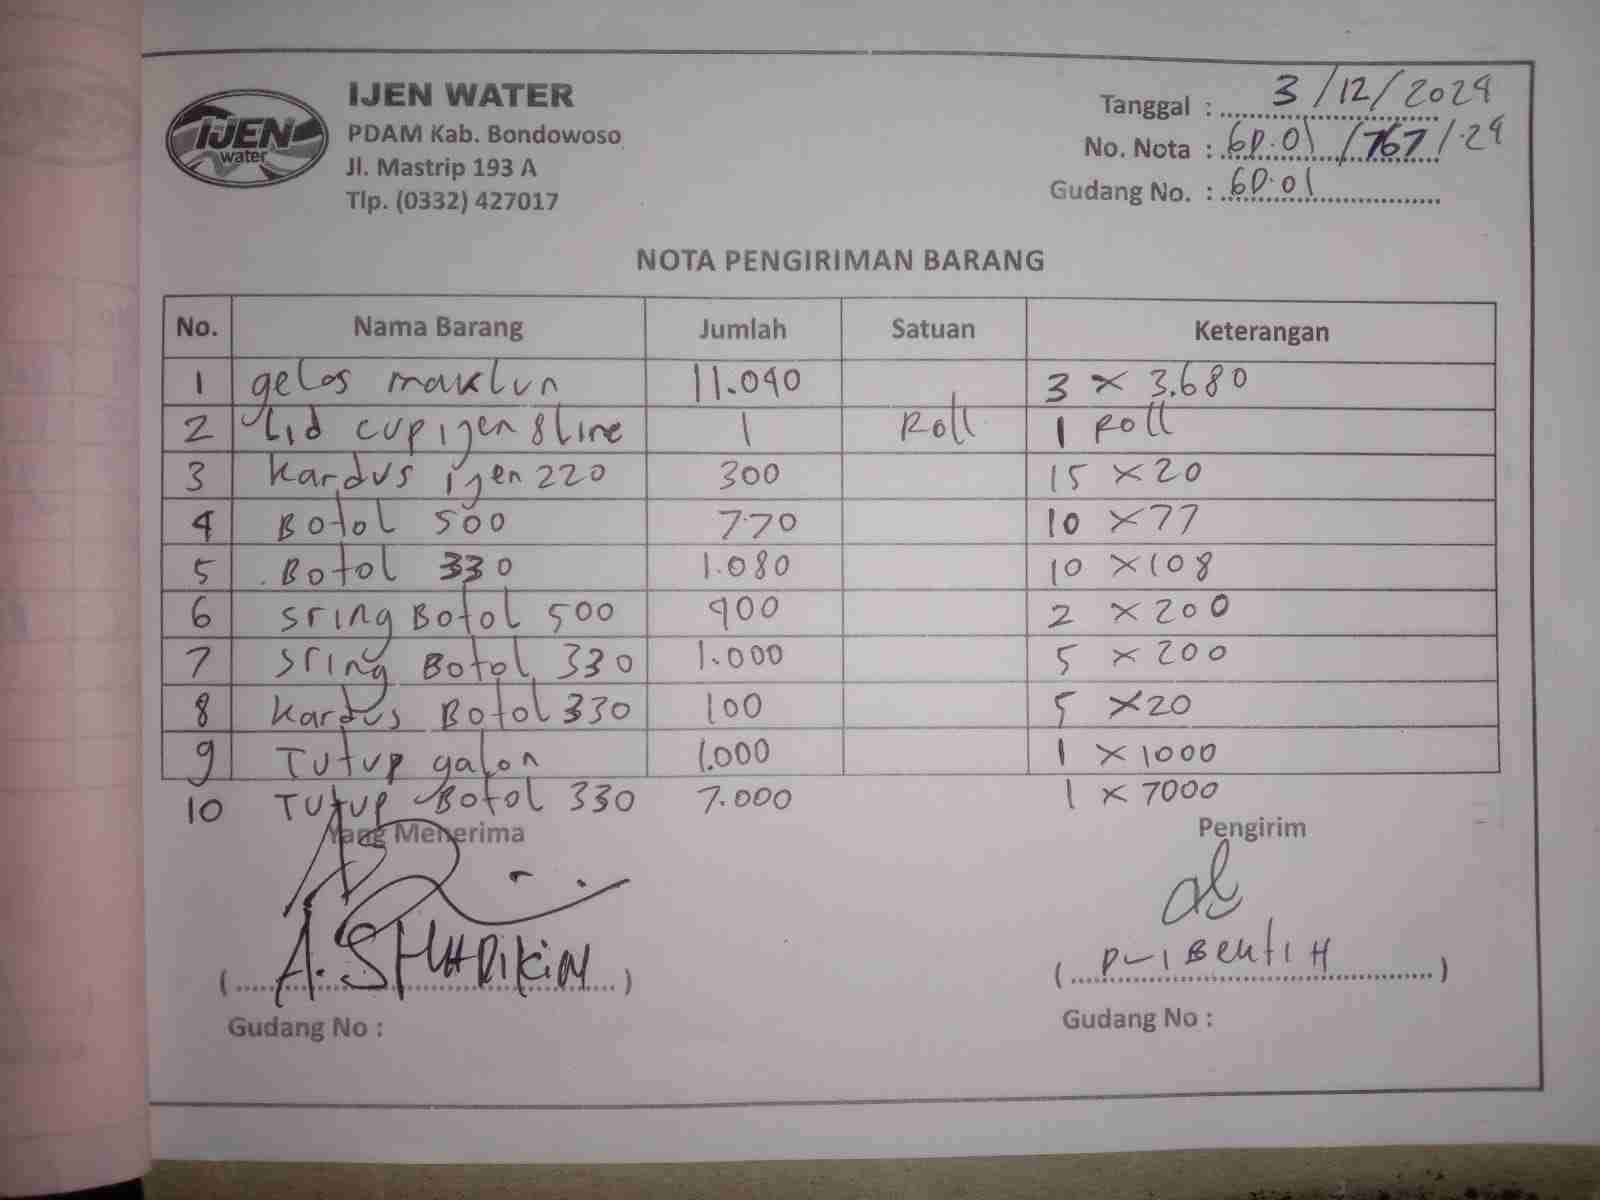 IJEN WATER
PDAM Kab. Bondowoso
Jl. Mastrip 193 A
Tlp. (0332) 427017
IJEN
water
Tanggal : 3/12/2024
No. Nota : GD.01/767/.24
Gudang No. : GD.01
NOTA PENGIRIMAN BARANG
No. Nama Barang Jumlah Satuan Keterangan
1 gelas maklun 11.040 3 x 3.680
2 Lid cup ijen 8 line 1 Roll 1 Roll
3 Kardus ijen 220 300 15 x 20
4 Botol 500 770 10 x 77
5 Botol 330 1.080 10 x 108
6 Sring Botol 500 400 2 x 200
7 Sring Botol 330 1.000 5 x 200
8 Kardus Botol 330 100 5 x 20
9 Tutup galon 1.000 1 x 1000
10 Tutup Botol 330 7.000 1 x 7000
Yang Menerima Pengirim
(A. SUHARIKIN) ( )
Gudang No : Gudang No :